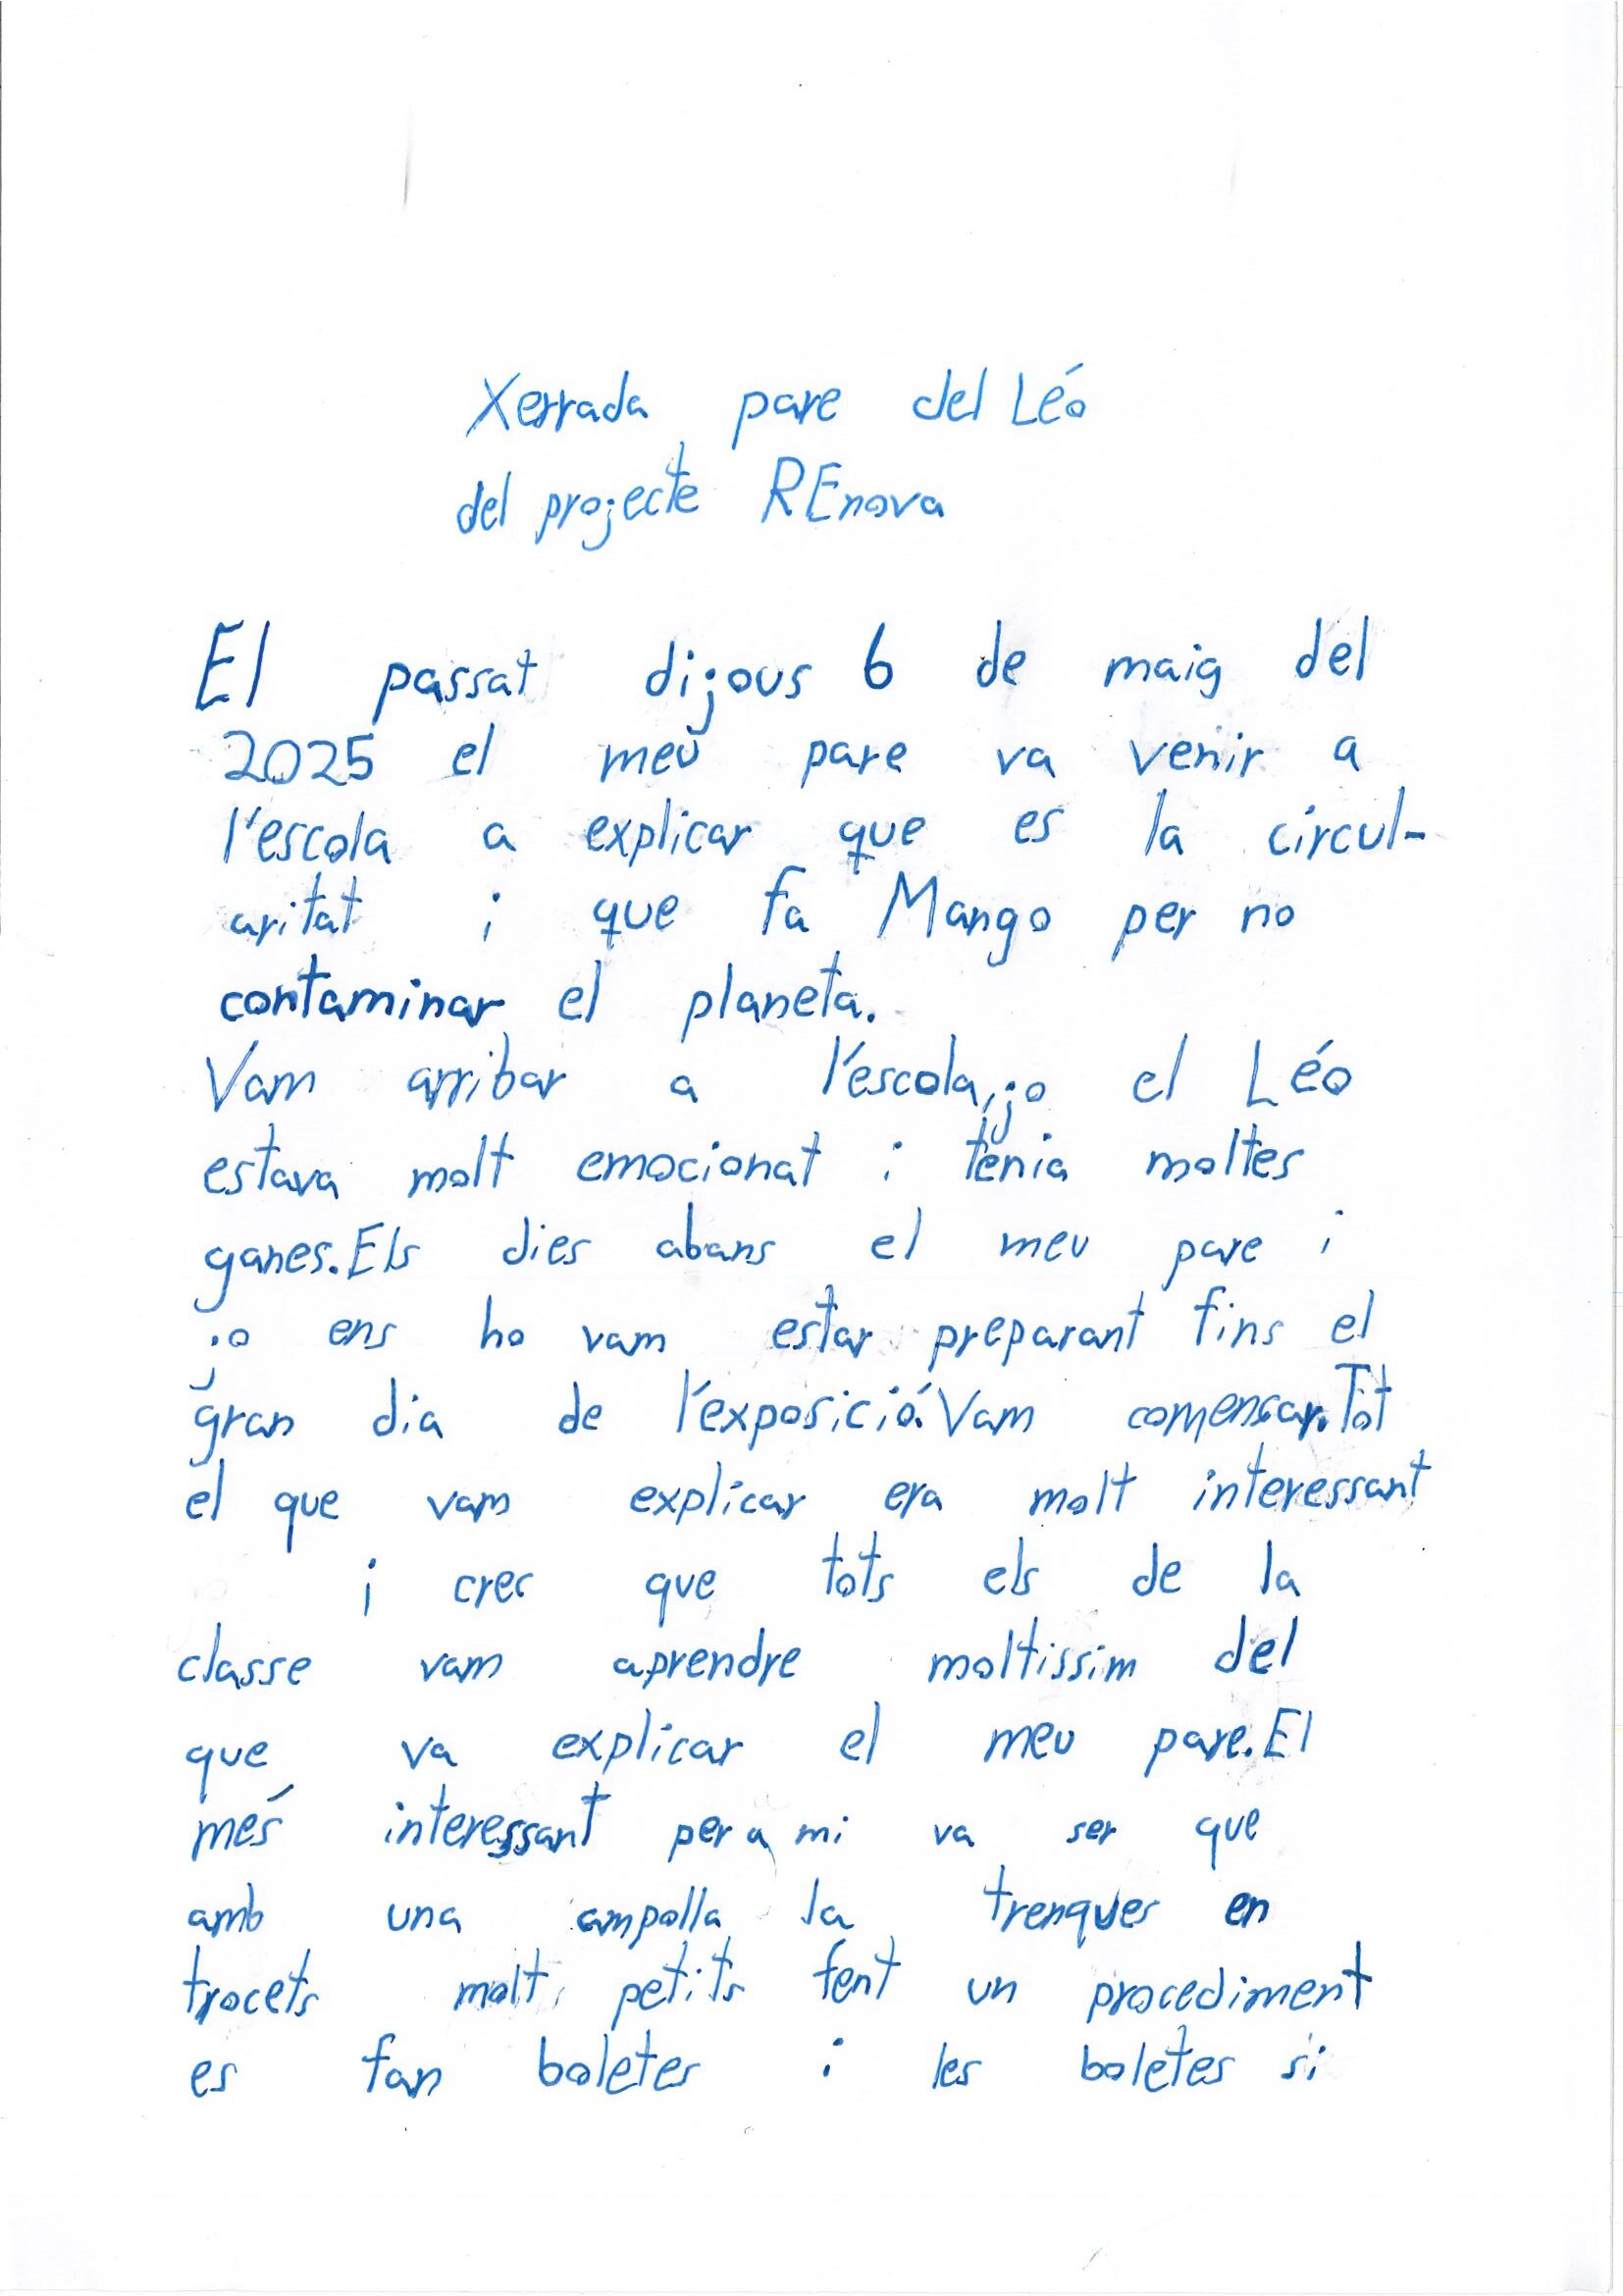 Xerrada pare del Léo
del projecte REnova
El passat dijous 6 de maig del
2025 el meu pare va venir a
l'escola a explicar que es la circul-
aritat i que fa Mango per no
contaminar el planeta.
Vam arribar a l'escola, jo el Léo
estava molt emocionat i tenia moltes
ganes. Els dies abans el meu pare i
jo ens ho vam estar preparant fins el
gran dia de l'exposició. Vam comensar. Tot
el que vam explicar era molt interessant
i crec que tots els de la
classe vam aprendre moltissim del
que va explicar el meu pare. El
més interessant per a mi va ser que
amb una ampolla la trenques en
trocets molt petits fent un procediment
es fan boletes i les boletes si